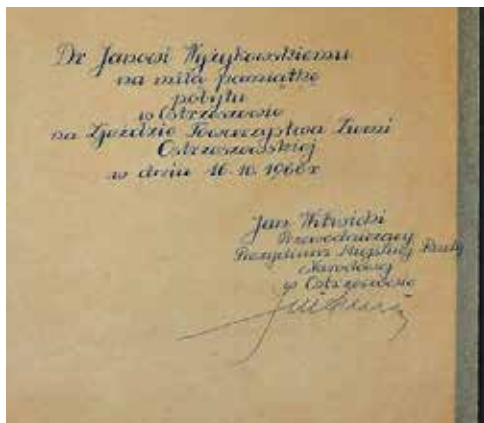 Dr Janowi Wyżykowskiemu
na miłą pamiątkę
pobytu
w Ostrzeszowie
na Zjeździe Towarzystwa Ziemi
Ostrzeszowskiej
w dniu 16.10.1966 r.
Jan Witwicki
Przewodniczący
Prezydium Miejskiej Rady
Narodowej
w Ostrzeszowie